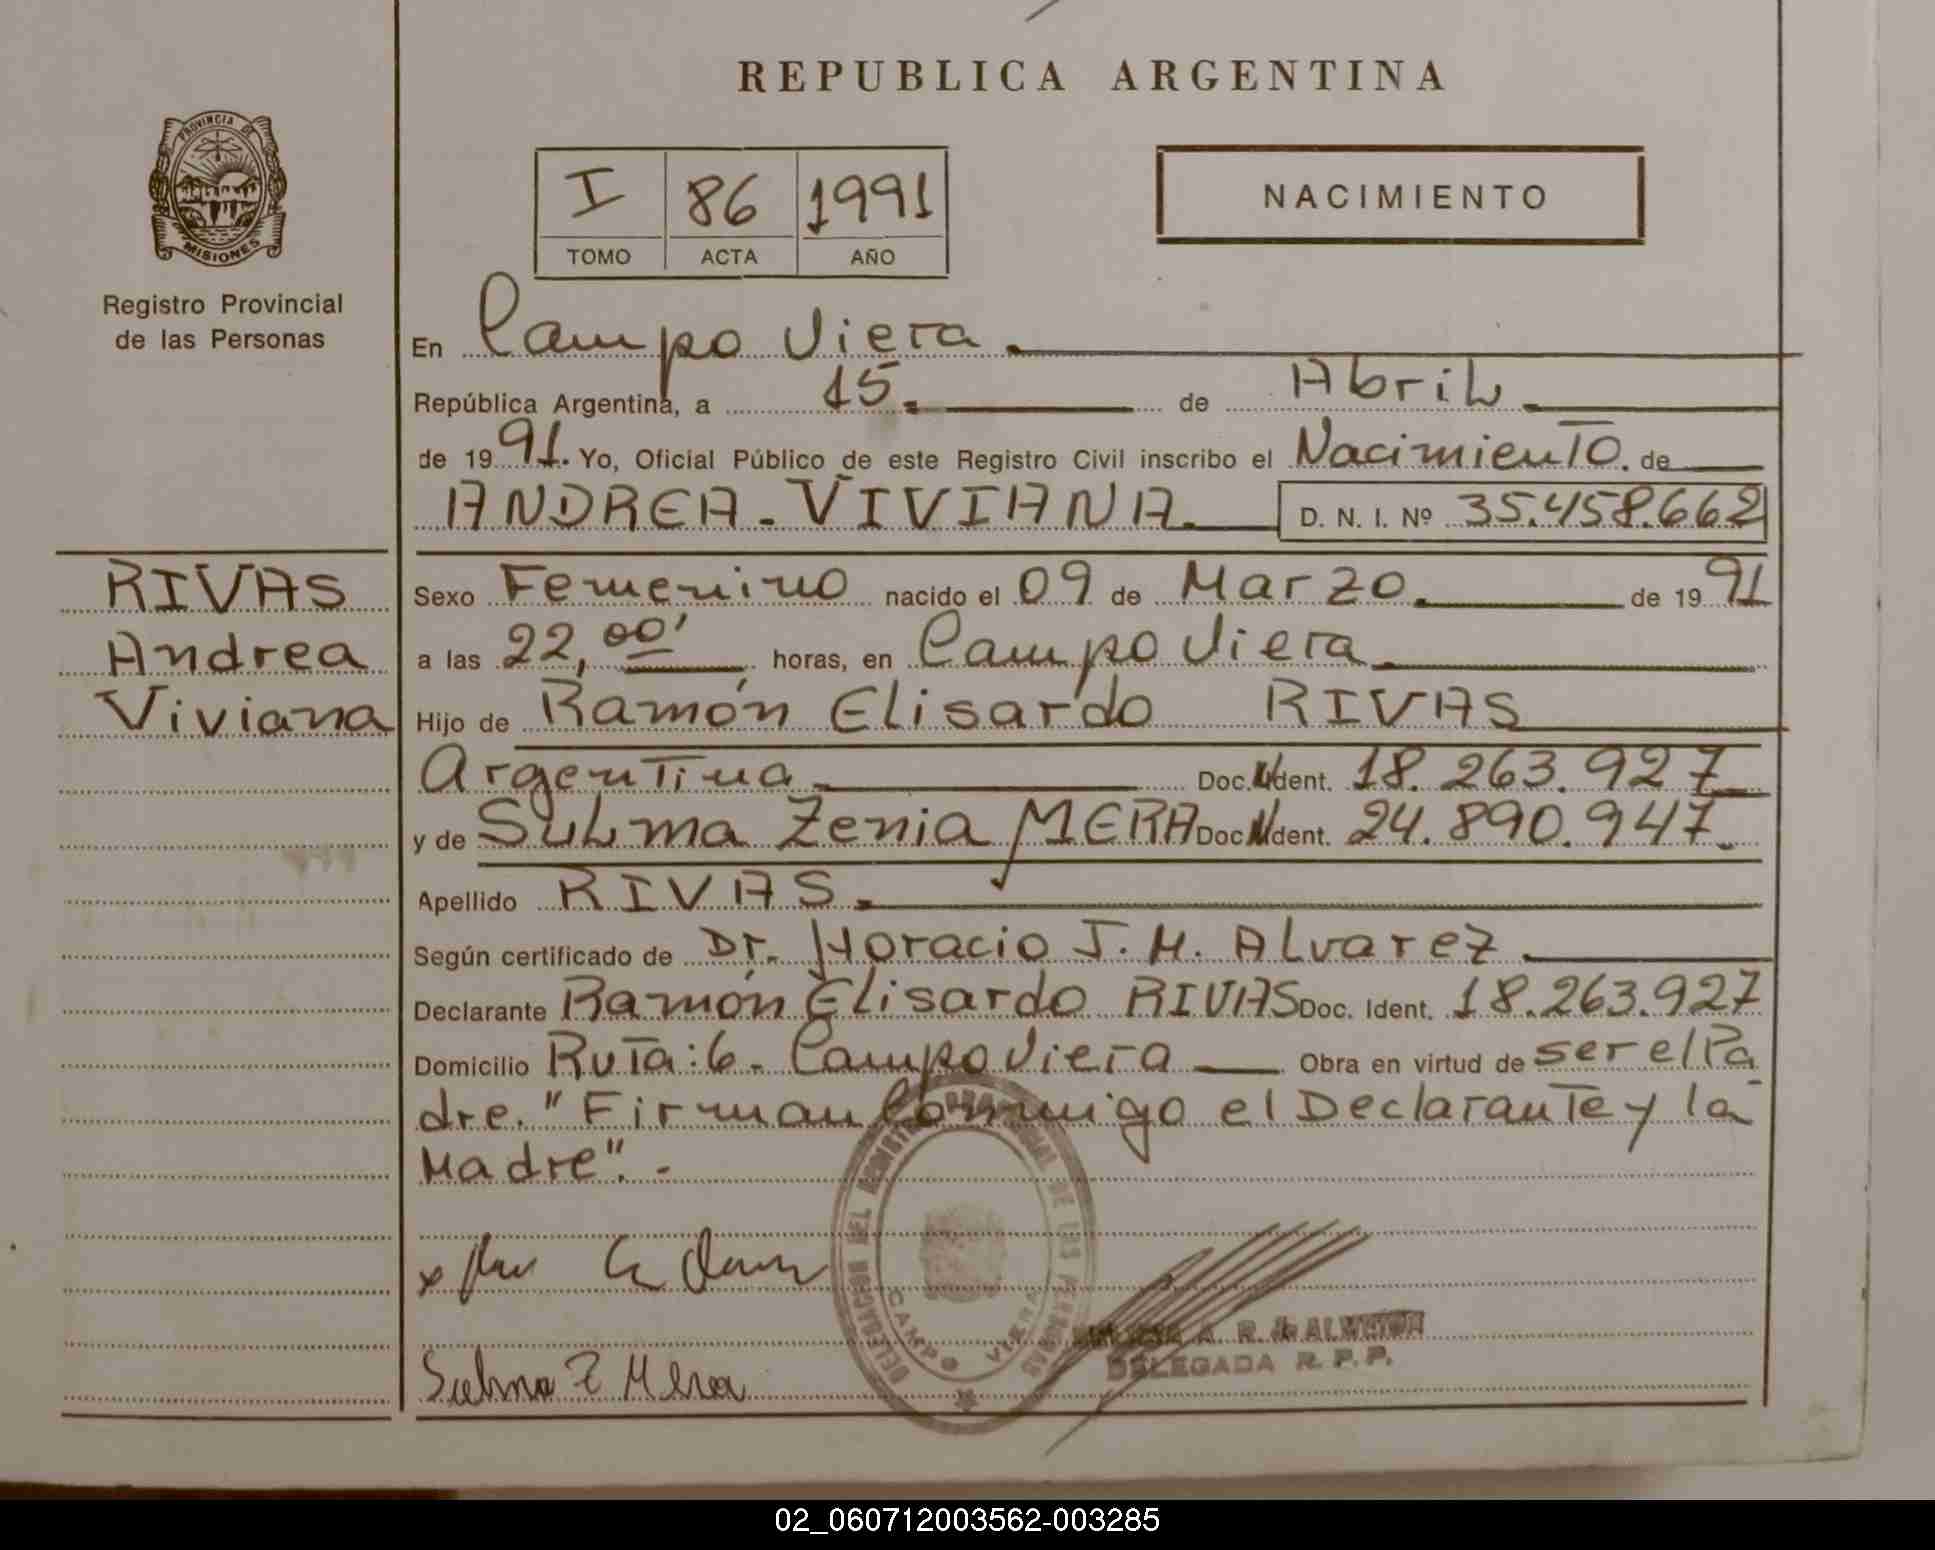 REPUBLICA ARGENTINA
PROVINCIA DE
MISIONES
Registro Provincial
de las Personas
I 86 1991
TOMO ACTA AÑO
NACIMIENTO
En Campo Viera.
República Argentina, a 15. de Abril.
de 1991. Yo, Oficial Público de este Registro Civil inscribo el Nacimiento. de
ANDREA - VIVIANA. D. N. I. Nº 35.458.662
RIVAS
Andrea
Viviana
Sexo Femenino nacido el 09 de Marzo. de 1991
a las 22,00' horas, en Campo Viera.
Hijo de Ramón Elisardo RIVAS
Argentina. Doc. Ident. 18.263.927
y de Sulma Zenia MERA Doc. Ident. 24.890.947.
Apellido RIVAS.
Según certificado de Dr. Horacio J. M. Alvarez.
Declarante Ramón Elisardo RIVAS Doc. Ident. 18.263.927
Domicilio Ruta: 6 - Campo Viera Obra en virtud de ser el Pa
dre. "Firman Conmigo el Declarante y la
Madre". -
DELEGACION DEL REGISTRO PROVINCIAL DE LAS PERSONAS
CAMPO VIERA
A. R. de
DELEGADA R. P. P.
Sulma Z Mera
02_060712003562-003285